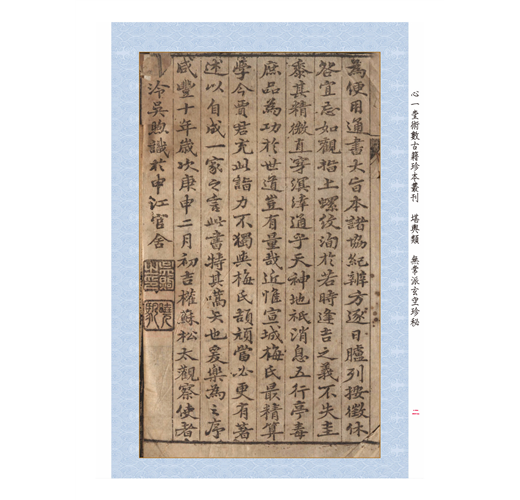 為便用通書大旨本諸協紀辨方逐日臚列按徵休
咎宜忌如觀指上螺紋洵於若時逢吉之義不失圭
黍其精微直穿溟涬通乎天神地祇消息五行亭毒
庶品為功於世道豈有量哉近惟宣城梅氏最精算
學今賈君充此詣力不獨與梅氏頡頏當必更有著
述以自成一家之言此書特其嚆矢也爰樂為之序
咸豐十年歲次庚申二月初吉權蘇松太觀察使者
泠吳煦識於申江官舍
心一堂術數古籍珍本叢刊 堪輿類 無常派玄空珍秘
二